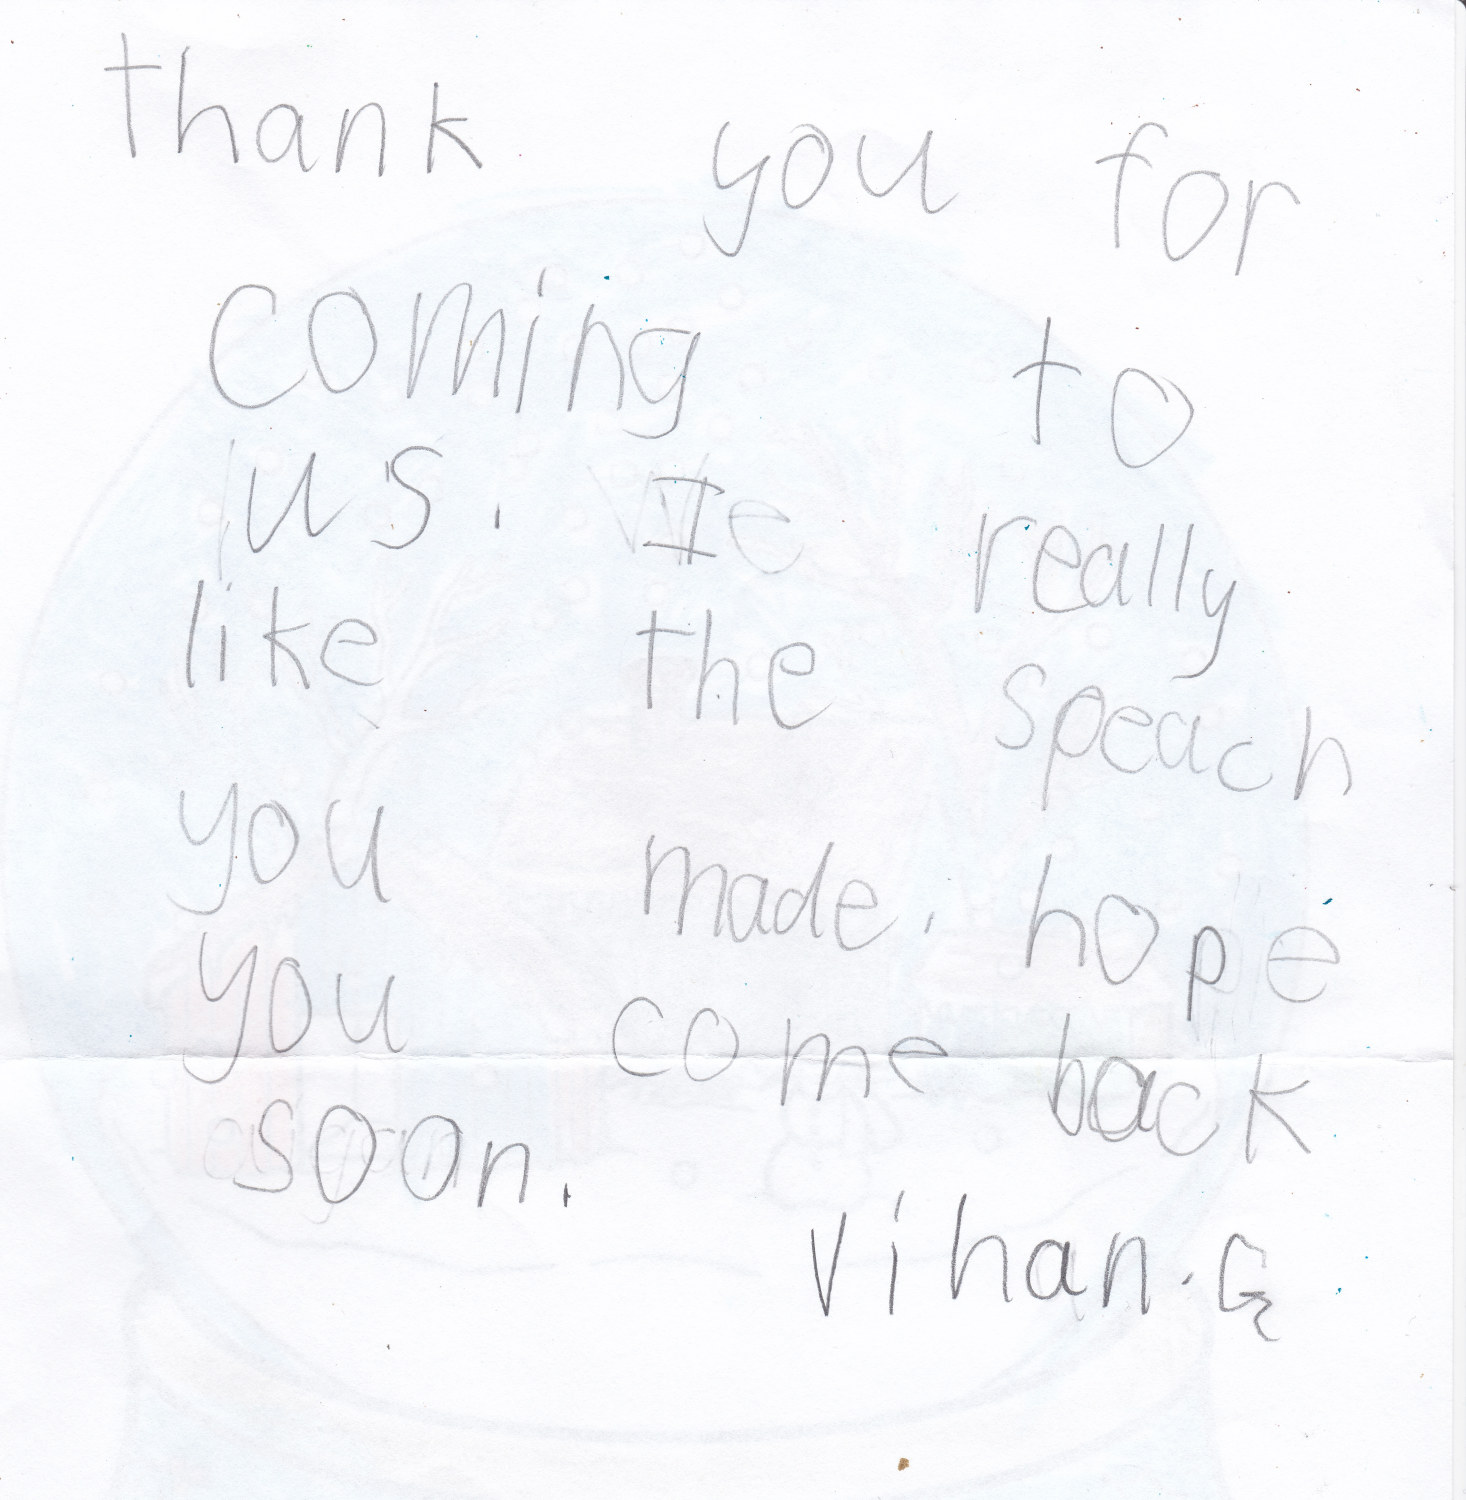 thank you for
coming to
us. I really
like the speach
you made. hope
you come back
soon.
Vihan. G